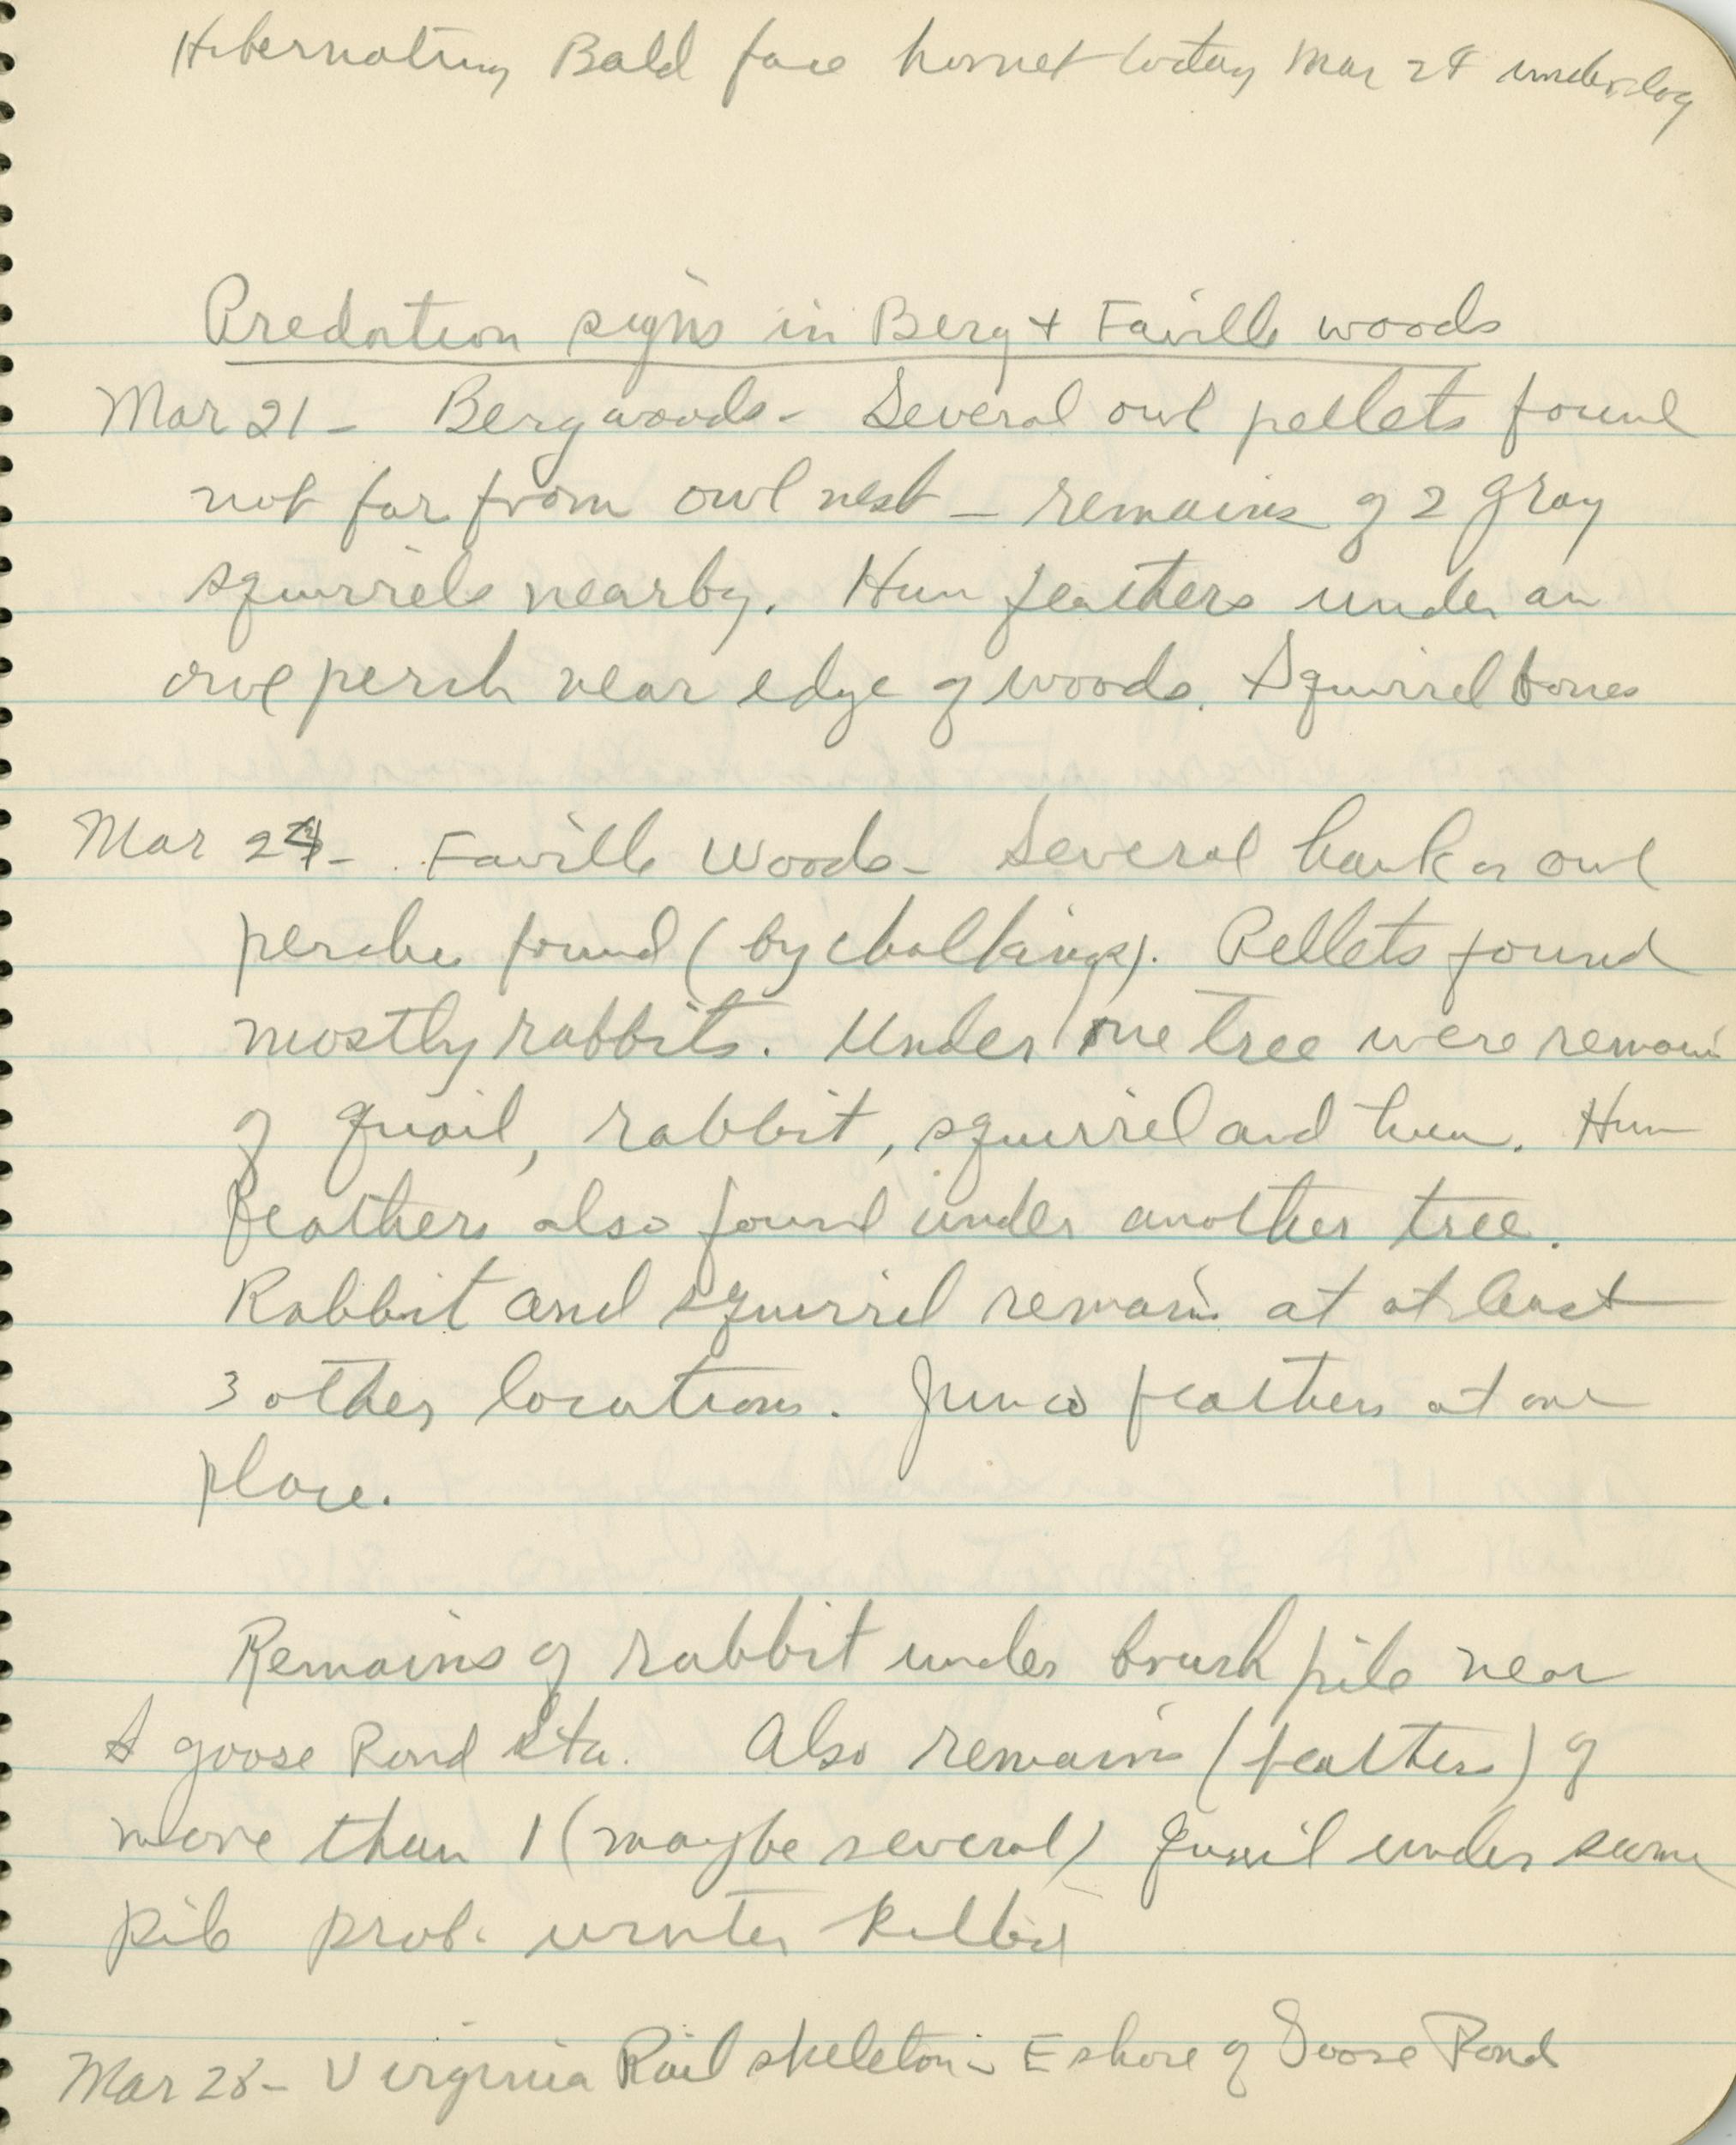 Hibernating Bald face hornet today Mar 24 under log
Predation signs in Berg + Faville woods
Mar 21 - Berg woods - Several owl pellets found
not far from owl nest - remains of 2 gray
squirrels nearby. Hun feathers under an
owl perch near edge of woods. Squirrel bones
Mar 24 - Faville Woods - Several hawk or owl
perches found (by chalkings). Pellets found
mostly rabbits. Under one tree were remains
of quail, rabbit, squirrel and hun. Hun
feathers also found under another tree.
Rabbit and squirrel remains at at least
3 other locations. Junco feathers at one
place.
Remains of rabbit under brush pile near
S goose Pond sta. Also remains (feathers) of
more than 1 (maybe several) quail under same
pile prob. winter killed
Mar 28 - Virginia Rail skeleton - E shore of Goose Pond